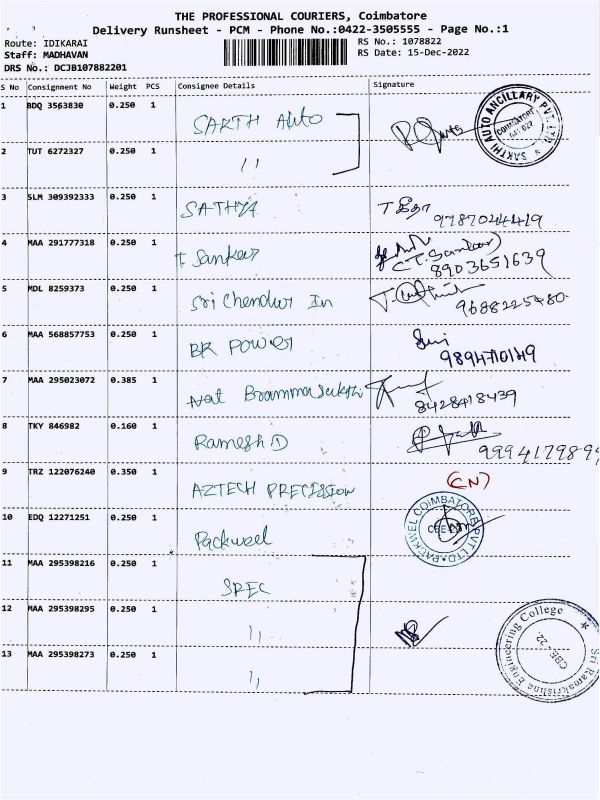 THE PROFESSIONAL COURIERS, Coimbatore
Delivery Runsheet - PCM - Phone No.:0422-3505555 - Page No.:1
Route: IDIKARAI
RS No.: 1078822
Staff: MADHAVAN
RS Date: 15-Dec-2022
DRS No.: DCJB107882201
S No Consignment No Weight PCS Consignee Details Signature
1 BDQ 3563830 0.250 1 SAKTH Auto
SAKTHI AUTO ANCILLARY PVT. LTD. COIMBATORE
2 TUT 6272327 0.250 1 ,,
3 SLM 309392333 0.250 1 SATHYA 9787044419
4 MAA 291777318 0.250 1 T Sankar (T. Sankar) 8903651639
5 MDL 8259373 0.250 1 Sri Chendur In 9688225480
6 MAA 568857753 0.250 1 BR POWER
7 MAA 295023072 0.385 1 Nat 8428418439
8 TKY 846982 0.160 1 Ramesh D 9994179899
9 TRZ 122076240 0.350 1 AZTECH PRECISSION (CN)
10 EDQ 12271251 0.250 1 Packwel
PACKWEL COIMBATORE PVT LTD
11 MAA 295398216 0.250 1 SREC
12 MAA 295398295 0.250 1 ,,
13 MAA 295398273 0.250 1 ,,
Sri Ramakrishna Engineering College CBE - 22.